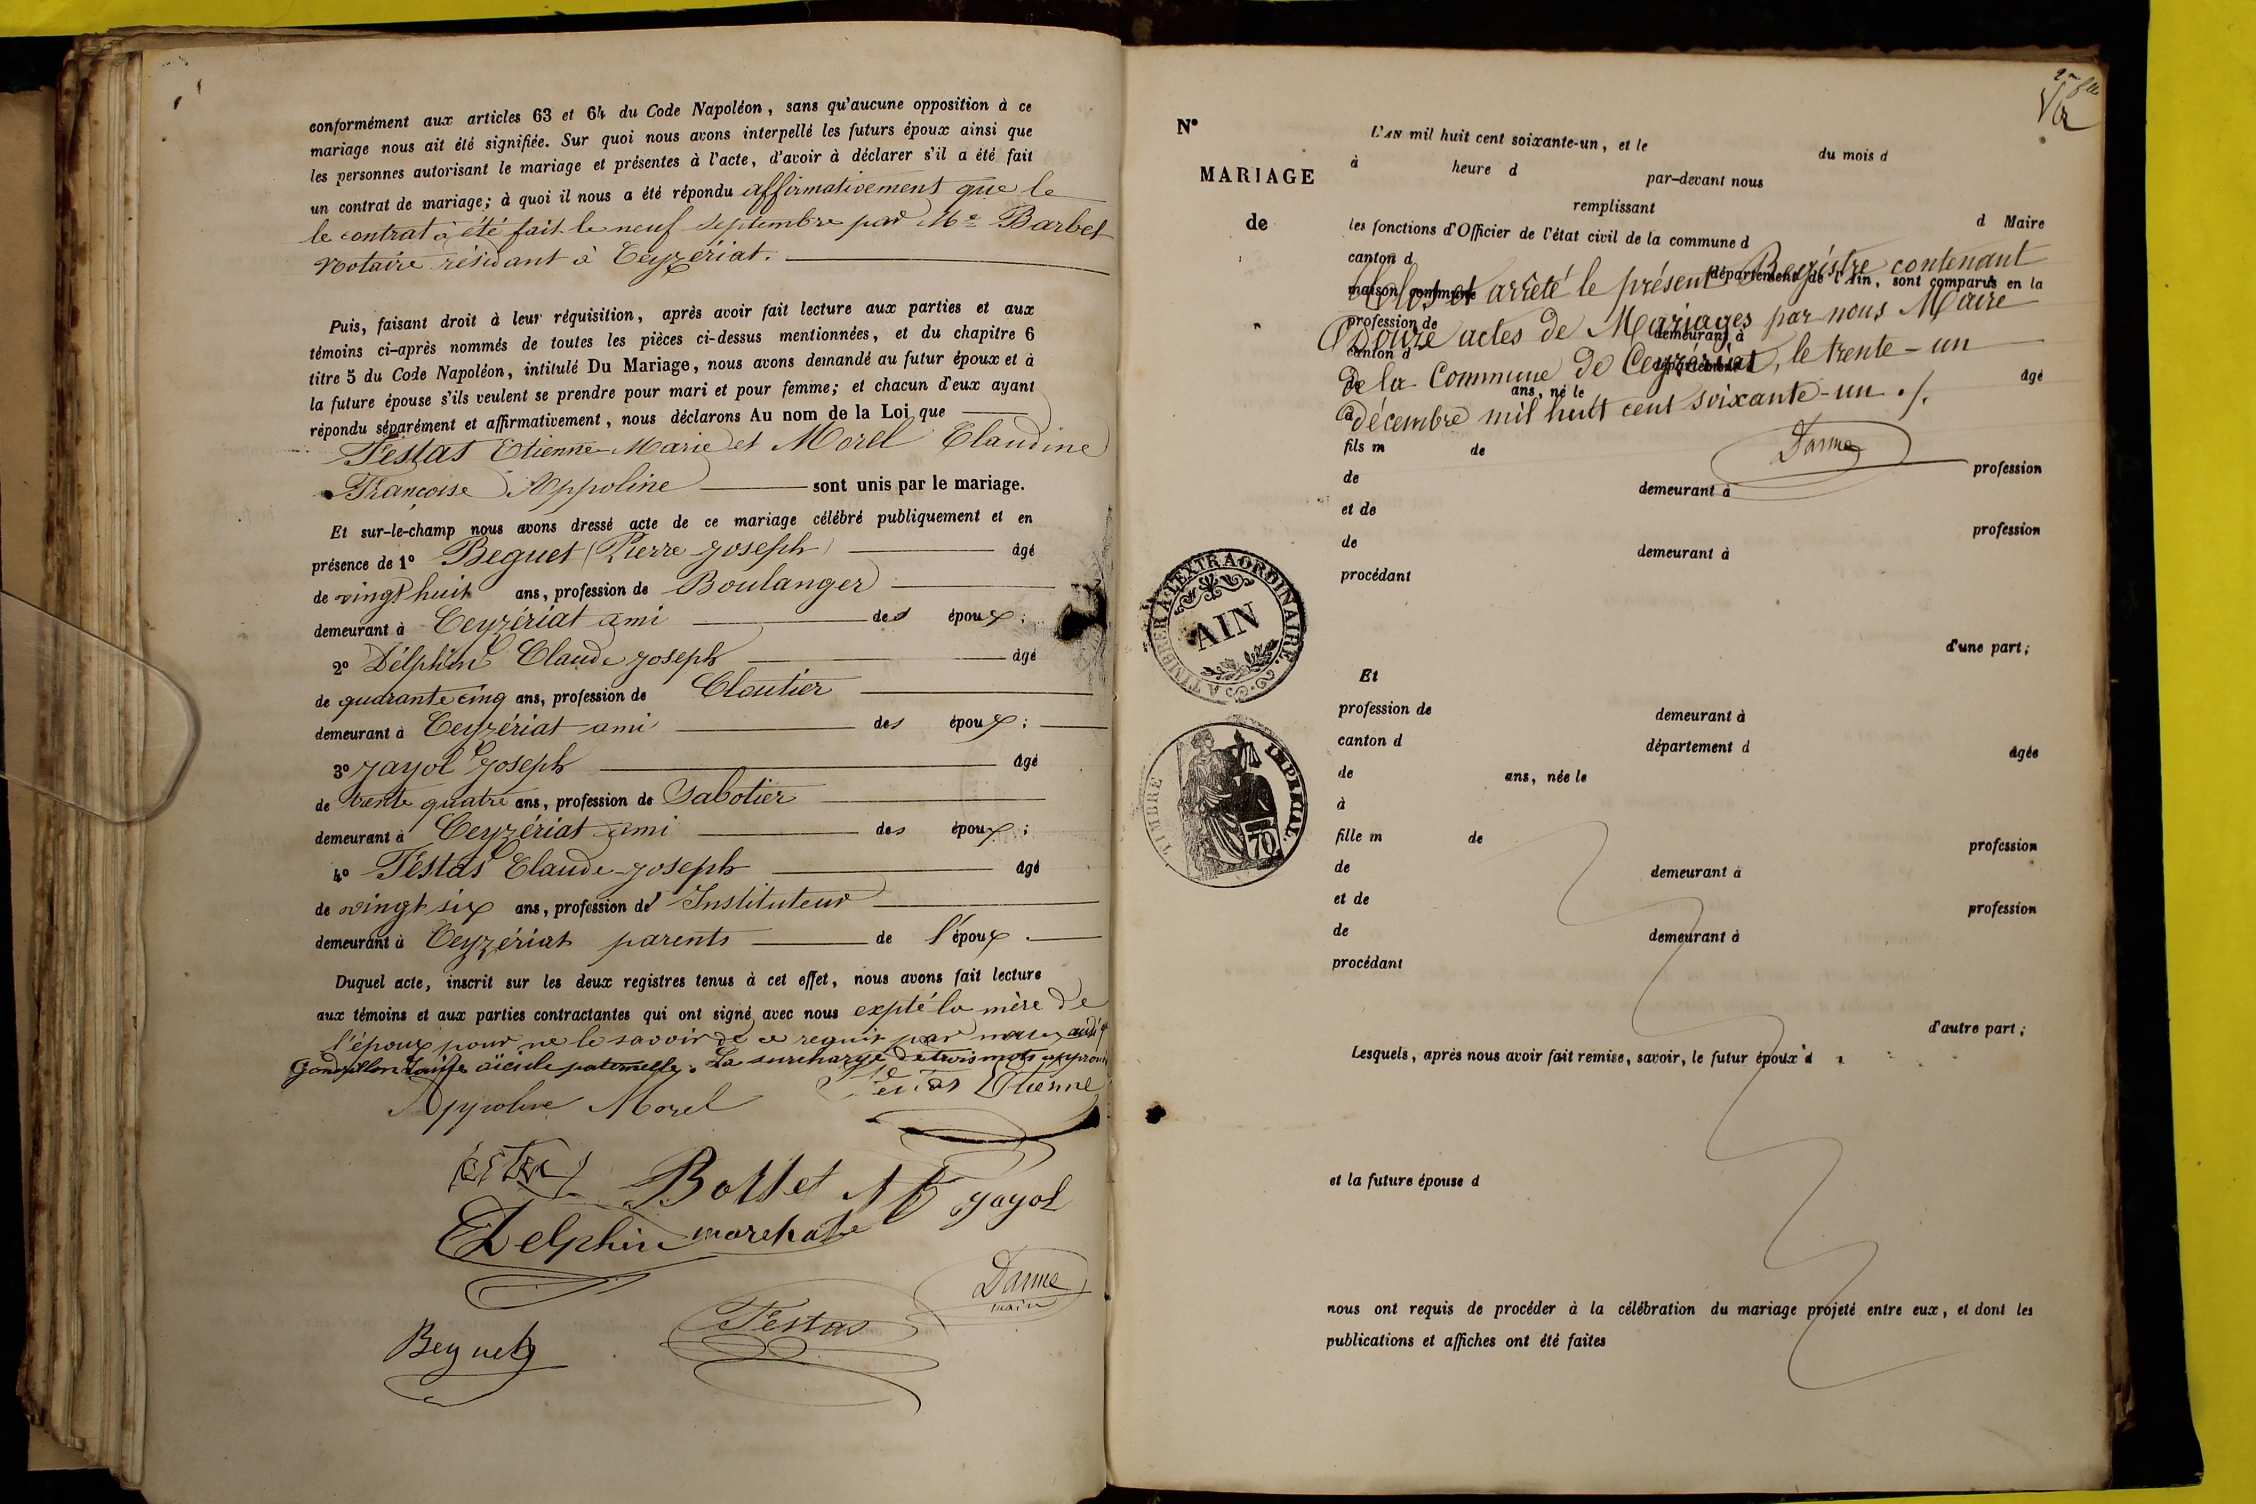 conformément aux articles 63 et 64 du Code Napoléon, sans qu'aucune opposition à ce
mariage nous ait été signifiée. Sur quoi nous avons interpellé les futurs époux ainsi que
les personnes autorisant le mariage et présentes à l'acte, d'avoir à déclarer s'il a été fait
un contrat de mariage; à quoi il nous a été répondu affirmativement que le
le contrat a été fait le neuf septembre par Me Barbet
Notaire résidant à Ceyzériat.
Puis, faisant droit à leur réquisition, après avoir fait lecture aux parties et aux
témoins ci-après nommés de toutes les pièces ci-dessus mentionnées, et du chapitre 6
titre 5 du Code Napoléon, intitulé Du Mariage, nous avons demandé au futur époux et à
la future épouse s'ils veulent se prendre pour mari et pour femme; et chacun d'eux ayant
répondu séparément et affirmativement, nous déclarons Au nom de la Loi que
Festas Etienne Marie et Morel Claudine
Françoise Appoline sont unis par le mariage.
Et sur-le-champ nous avons dressé acte de ce mariage célébré publiquement et en
présence de 1º Beguet (Pierre Joseph) âgé
de vingt huit ans, profession de Boulanger
demeurant à Ceyzériat ami des époux;
2º Délphin Claude Joseph âgé
de quarante cinq ans, profession de Cloutier
demeurant à Ceyzériat ami des époux;
3º Jayol Joseph âgé
de trente quatre ans, profession de Sabotier
demeurant à Ceyzériat ami des époux;
4º Festas Claude Joseph âgé
de vingt six ans, profession de Instituteur
demeurant à Ceyzériat parents de l'époux.
Duquel acte, inscrit sur les deux registres tenus à cet effet, nous avons fait lecture
aux témoins et aux parties contractantes qui ont signé avec nous expté la mère de
l'époux pour ne le savoir de ce requis par nous
paternelle. La surcharge de trois mots
Appoline Morel Festas Etienne
Delphin Jayol
Darme
maire
Beguet Festas
Nº
MARIAGE
de
L'AN mil huit cent soixante-un, et le du mois d
à heure d par-devant nous
remplissant
les fonctions d'Officier de l'état civil de la commune d d Maire
canton d département de l'Ain, sont comparus en la
Clos et arrêté le présent Registre contenant
maison commune
Douze actes de Mariages par nous Maire
profession de demeurant à
canton d département d
de la Commune de Ceyzériat, le trente-un
de ans, né le âgé
décembre mil huit cent soixante-un ./.
à
Darme
fils m de profession
de demeurant à
et de profession
de demeurant à
procédant
A TIMBRER A L'EXTRAORDINAIRE.
AIN
d'une part;
Et
profession de demeurant à
canton d département d âgée
TIMBRE IMPERIAL
70
de ans, née le
à
fille m de profession
de demeurant à
et de profession
de demeurant à
procédant
d'autre part;
Lesquels, après nous avoir fait remise, savoir, le futur époux d
et la future épouse d
nous ont requis de procéder à la célébration du mariage projeté entre eux, et dont les
publications et affiches ont été faites